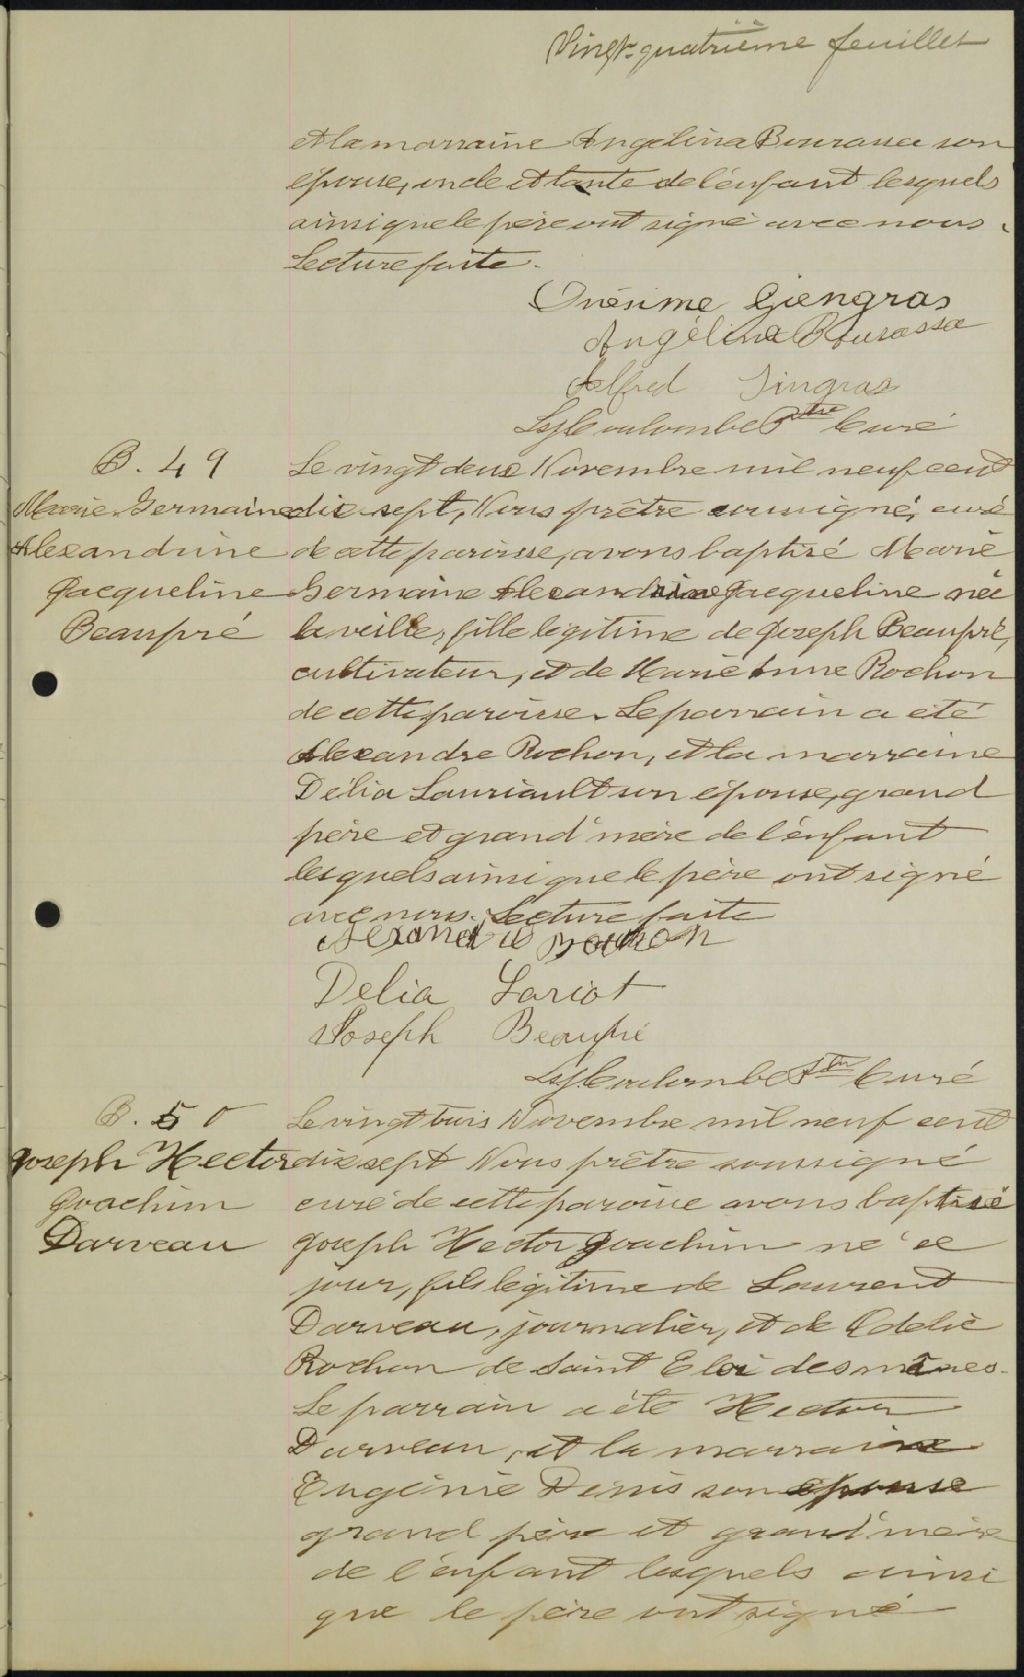 Vingt-quatrième feuillet
et la marraine Angélina Bourassa son
épouse, oncle et tante de l'enfant lesquels
ainsi que le père ont signé avec nous.
Lecture faite.
Onésime Giengras
Angélina Bourassa
Alfred Gingras
Coulombe Ptre Curé
B. 49
Marie Germaine
Alexandrine
Jacqueline
Beaupré
Le vingt deux Novembre mil neuf cent
dix sept, Nous prêtre soussigné, curé
de cette paroisse, avons baptisé Marie
Germaine Alexandrine Jacqueline née
la veille, fille légitime de Joseph Beaupré,
cultivateur, et de Marie Anne Rochon
de cette paroisse. Le parrain a été
Alexandre Rochon, et la marraine
Délia Lauriault son épouse, grand
père et grand'mère de l'enfant
lesquels ainsi que le père ont signé
avec nous. Lecture faite
Alexandre Rochon
Delia Lariot
Joseph Beaupré
Coulombe Ptre Curé
B. 50
Joseph Hector
Joachim
Darveau
Le vingt trois Novembre mil neuf cent
dix sept Nous prêtre soussigné
curé de cette paroisse avons baptisé
Joseph Hector Joachim né ce
jour, fils légitime de Laurent
Darveau, journalier, et de Odélie
Rochon de Saint Eloi des mines.
Le parrain a été Hector
Darveau, et la marraine
Eugénie Denis son épouse
grand père et grand'mère
de l'enfant lesquels ainsi
que le père ont signé